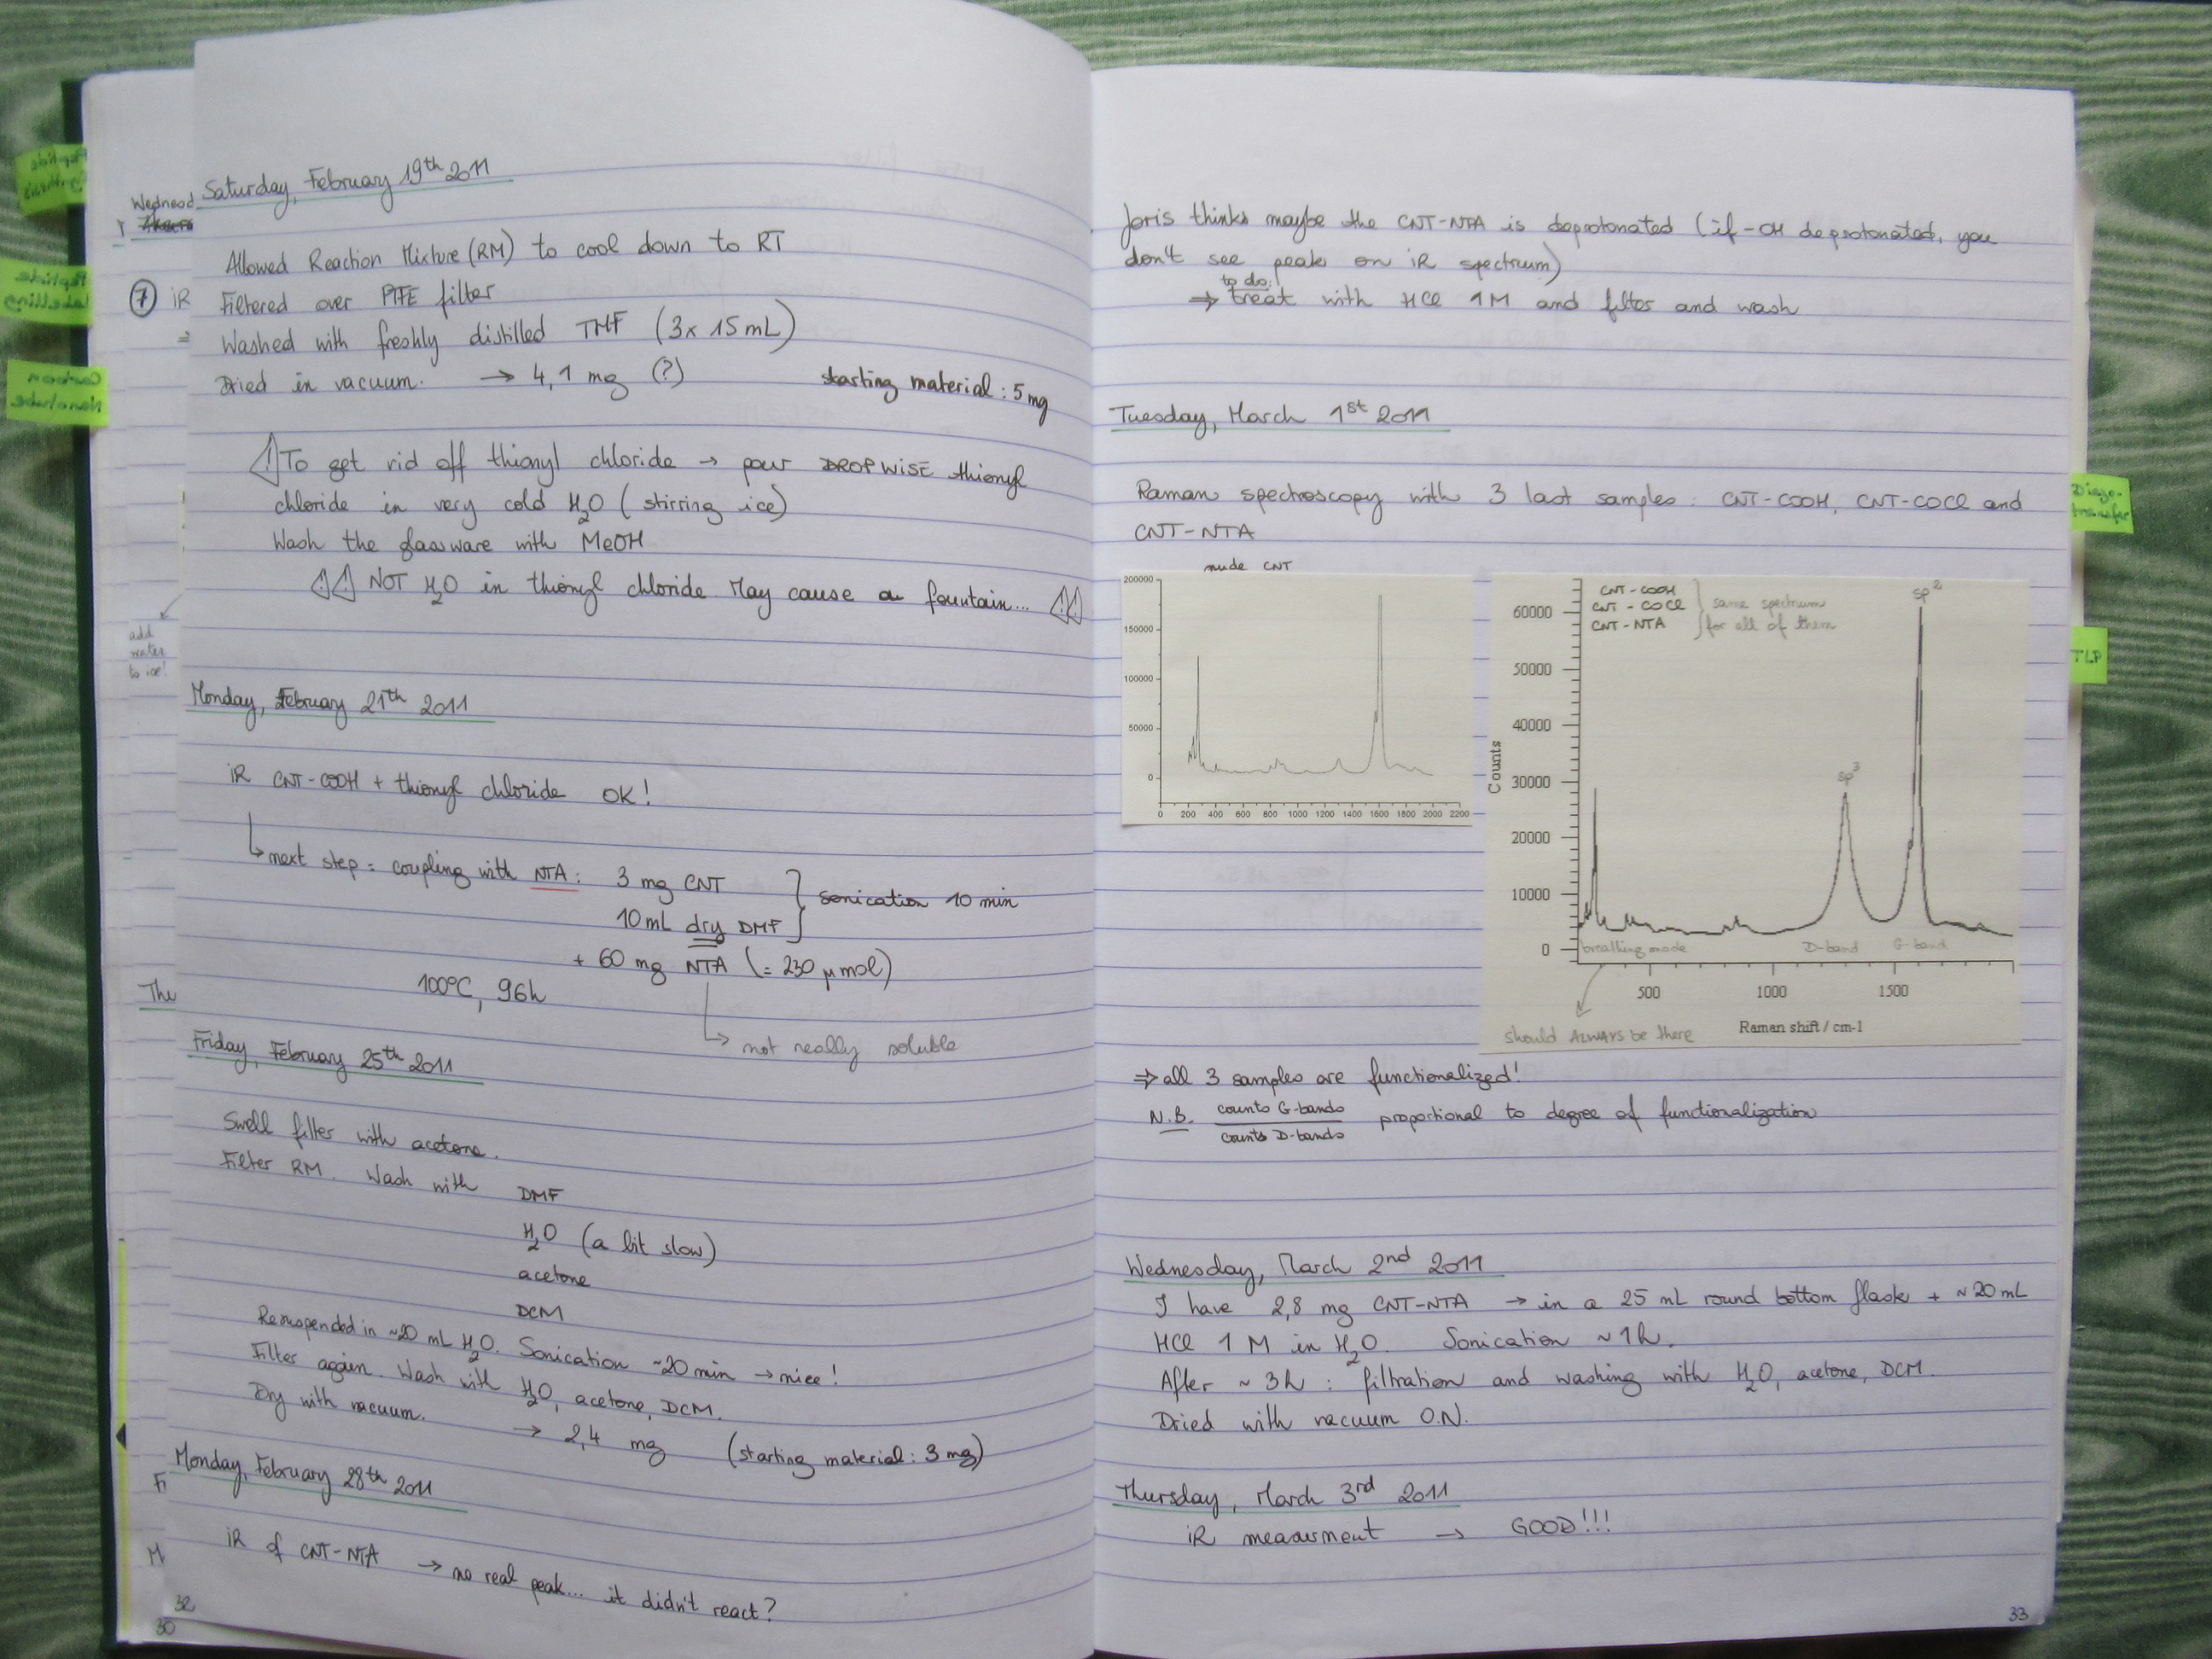 Saturday, February 19th 2011
Allowed Reaction Mixture (RM) to cool down to RT
Filtered over PTFE filter
Washed with freshly distilled THF (3x 15 mL)
Dried in vacuum. → 4,1 mg (?) starting material: 5 mg
! To get rid off thionyl chloride → pour DROPWISE thionyl
chloride in very cold H2O (stirring ice)
Wash the glassware with MeOH
!! NOT H2O in thionyl chloride. May cause a fountain... !!
Monday, February 21th 2011
iR CNT-COOH + thionyl chloride OK!
next step = coupling with NTA: 3 mg CNT
10 mL dry DMF
sonication 10 min
+ 60 mg NTA (= 230 µmol)
100°C, 96h
not really soluble
Friday, February 25th 2011
Swell filter with acetone.
Filter RM. Wash with DMF
H2O (a bit slow)
acetone
DCM
Resuspended in ~20 mL H2O. Sonication ~20 min → nice!
Filter again. Wash with H2O, acetone, DCM.
Dry with vacuum. → 2,4 mg (starting material: 3 mg)
Monday, February 28th 2011
iR of CNT-NTA → no real peak... it didn't react?
32
Wednesd
7 iR
add
water
to ice!
Thu
Fi
M
30
Peptide
Synthesis
Peptide
labelling
Carbon
Nanotube
Joris thinks maybe the CNT-NTA is deprotonated (if -OH deprotonated, you
don't see peak on iR spectrum)
to do:
⇒ treat with HCl 1M and filter and wash
Tuesday, March 1st 2011
Raman spectroscopy with 3 last samples: CNT-COOH, CNT-COCl and
CNT-NTA
nude CNT
200000
150000
100000
50000
0
0 200 400 600 800 1000 1200 1400 1600 1800 2000 2200
CNT-COOH
CNT-COCl
CNT-NTA
same spectrum
for all of them
sp2
sp3
Counts
60000
50000
40000
30000
20000
10000
0
breathing mode D-band G-band
500 1000 1500
Raman shift / cm-1
should ALWAYS be there
⇒ all 3 samples are functionalized!
N.B. counts G-bands / counts D-bands proportional to degree of functionalization
Wednesday, March 2nd 2011
I have 2,8 mg CNT-NTA → in a 25 mL round bottom flask + ~20 mL
HCl 1 M in H2O. Sonication ~1h.
After ~3h: filtration and washing with H2O, acetone, DCM.
Dried with vacuum O.N.
Thursday, March 3rd 2011
iR measurment → GOOD!!!
33
Diazo-
transfer
TLP